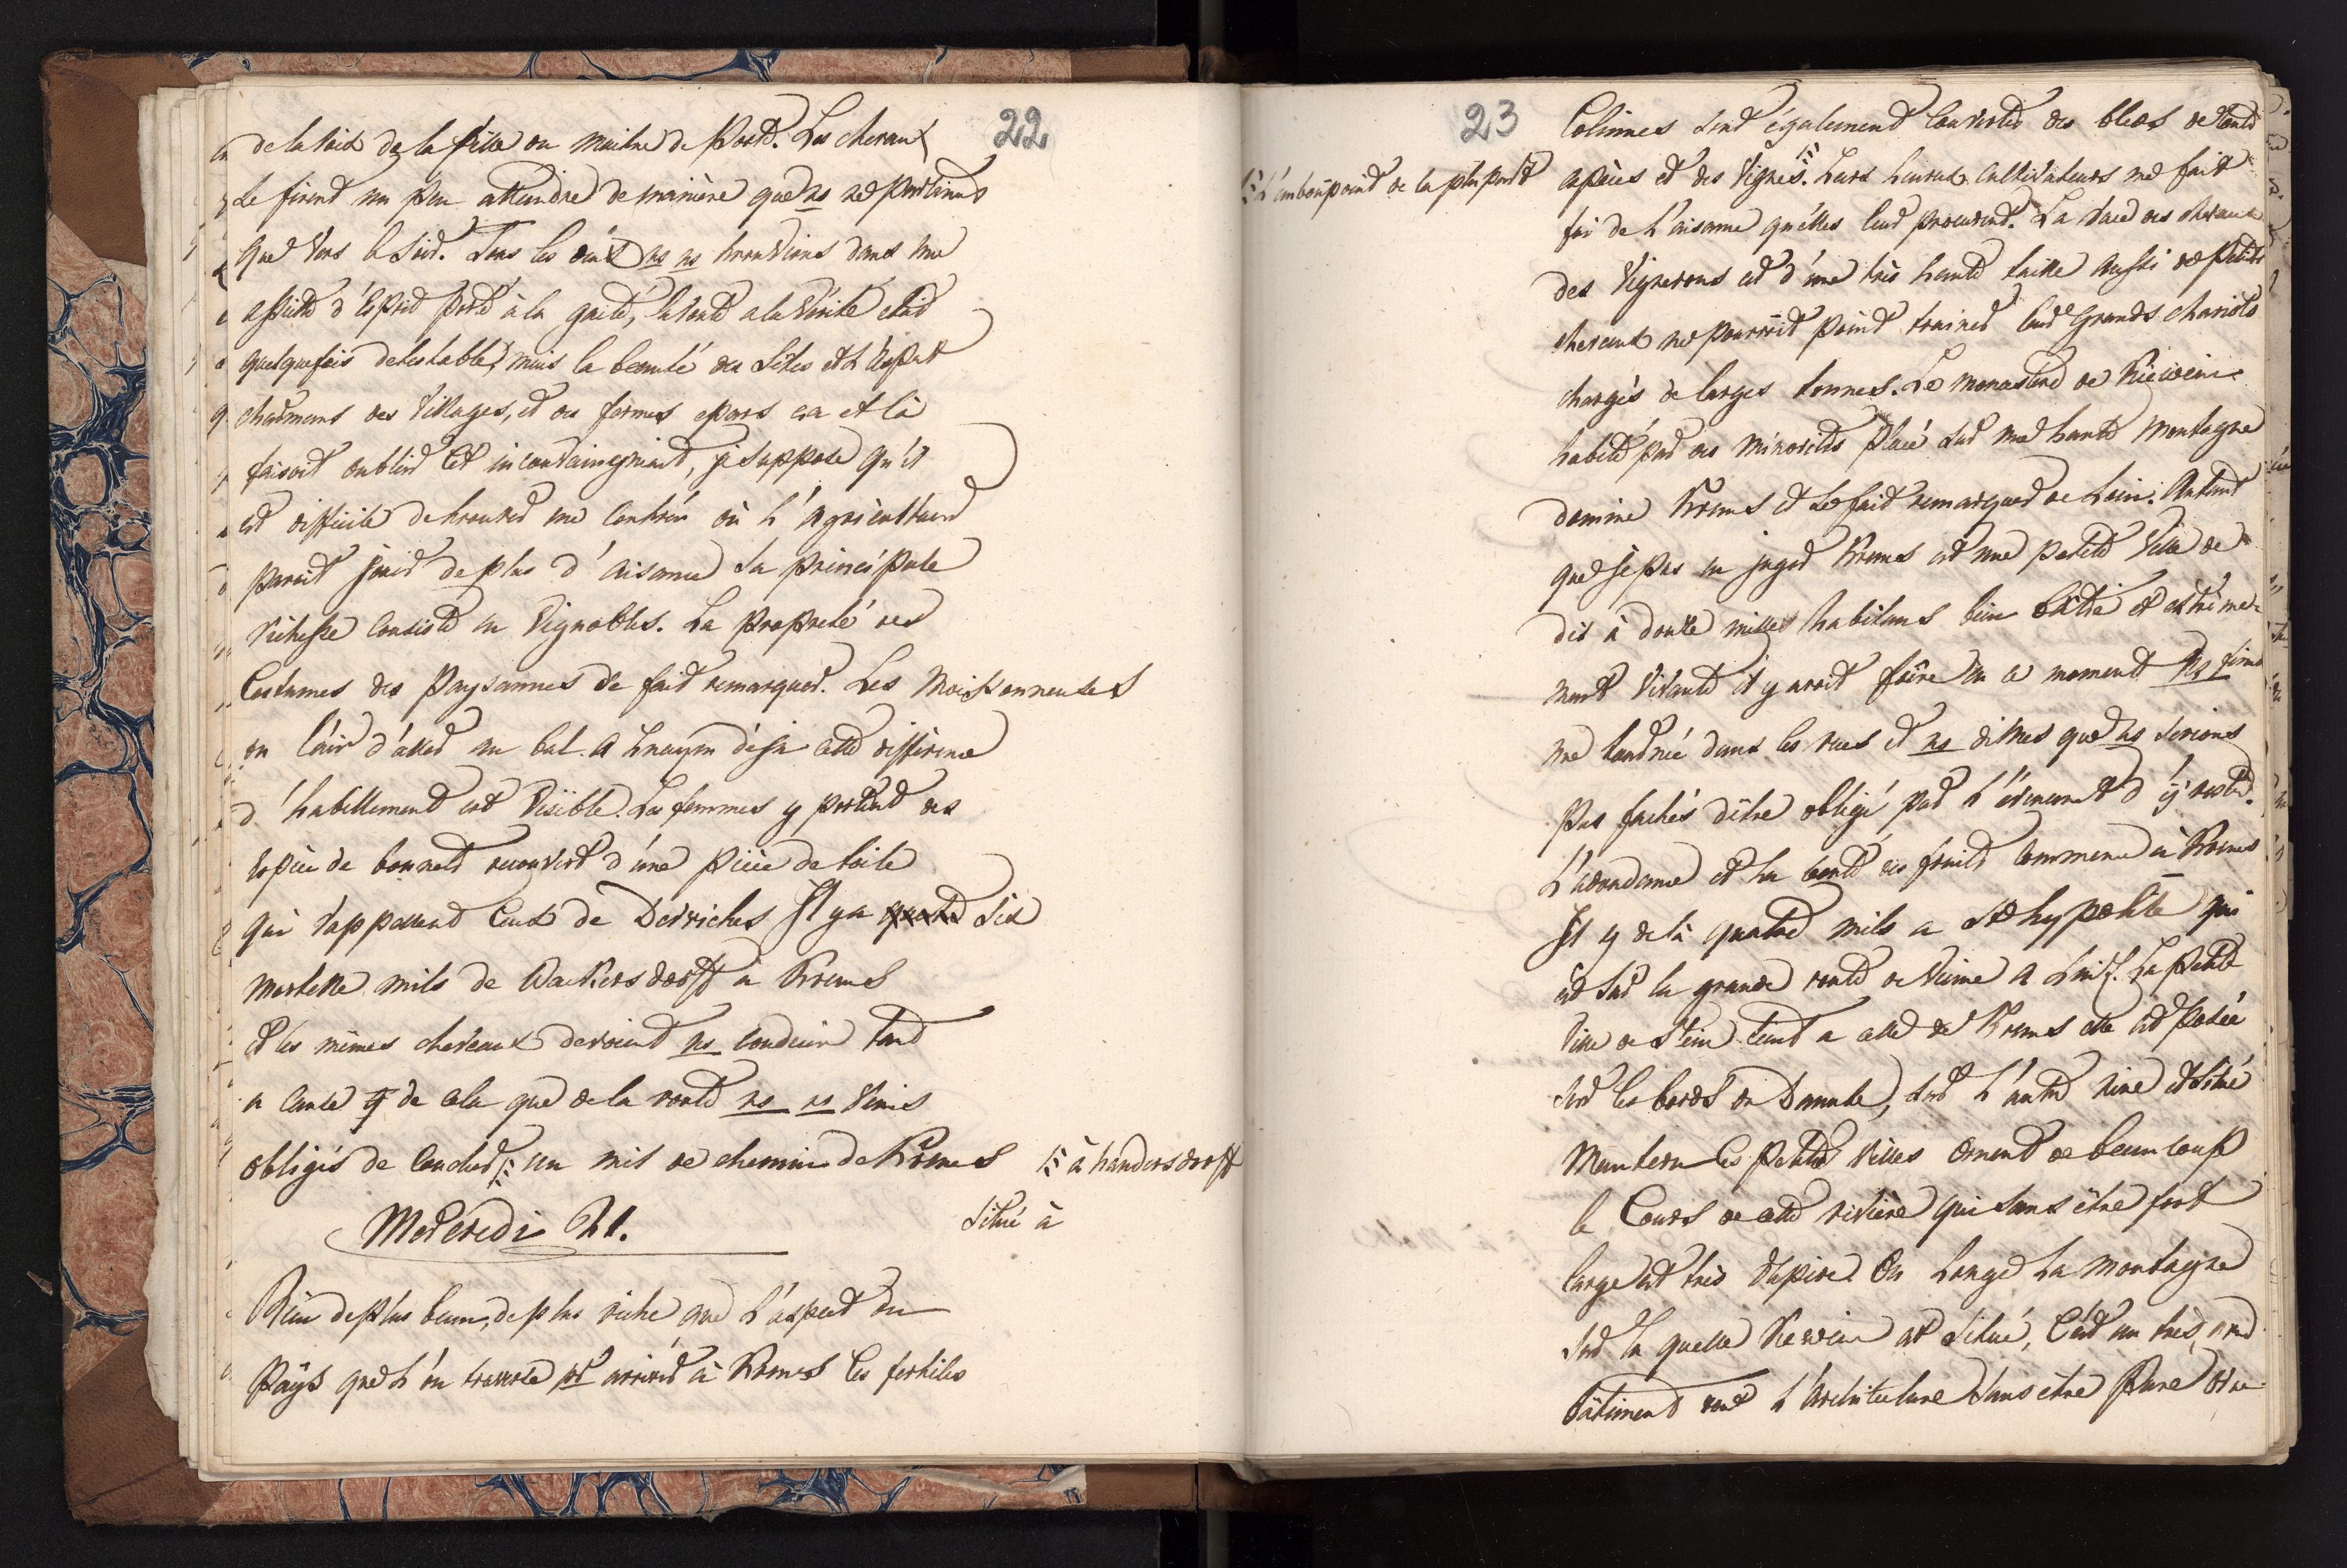 22
de la voix de la fille du maitre de Poste. Les chevaux
se firent un peu attendre de manière que ns ne partimes
que vers le soir. Tous les deux ns ns trouvions dans une
assiette d'Esprit porté à la gaité, la route a la vérité etoit
quelquefois detestable, mais la beauté des Sites et l'aspect
charmant des Villages, et des fermes epars ca et là
faisoit oublier cet inconvainegniant, je suppose qu'il
est difficile de trouver une Contrée où l'Agriculteur
paroit jouir de plus d'aisance sa principale
richesse consiste en Vignobles. La propreté des
Costumes des Paysannes se fait remarquer. Les Moissonneuses
on l'air d'aller au bal. A Znaym déja cette difference
d'habillement est visible. Les femmes y portent des
espèce de bonnets recouvert d'une pièce de toile
qui rappellent ceux de Derviches Il y a quatre Six
mortelle mils de Wackersdorff à Krems
et les mêmes chevaux devoient ns conduire tant
a cause de cela que de la route ns ns vimes
obligés de coucher un mil de chemin de Krems
à handersdorff
situé à
Mercredi 21.
Rien de plus beau, de plus riche que l'aspect du
Pays que l'on traverse pr arriver à Krems les fertiles
23
Colinnes sont également couvertes des bleds de toute
l'embonpoint de la plupart
espèces et des Vignes. Leurs heureux cultivateurs me fait
foi de l'aisance qu'elles leur procurent. La race des chevaux
des Vignerons est d'une très haute taille aussi de petits
chevaux ne pourroit point trainer leur Grands chariots
chargés de larges tonnes. Le monastere de
habité par des Minorites placé sur une haute Montagne
domine Krems et se fait remarquer de Loin. Autant
que je pus en juger Krems est une petite Ville de
dix à douze milles habitans bien bâtie et extrême-
ment vivante il y avoit foire en ce moment ns fimes
une tournée dans les rues et ns dimes que ns serions
pas fachés d'être obligé par l'évenement d'y rester.
L'abondance et la bonté des fruits commence à Krems
Il y de là quatre mils a St hypolite qui
est sur la grande route de Vienne a Linz. La petite
Ville de Stein tient a celle de Krems elle est posée
sur les bords du Danube, sur l'autre rive est situé
Mautern les petites Villes ornent de beaucoup
le Cours de cette rivière qui sans être fort
large est très On longe la Montagne
sur la quelle est situé, C'est un très
bâtiment dont l'Architecture sans être Pure